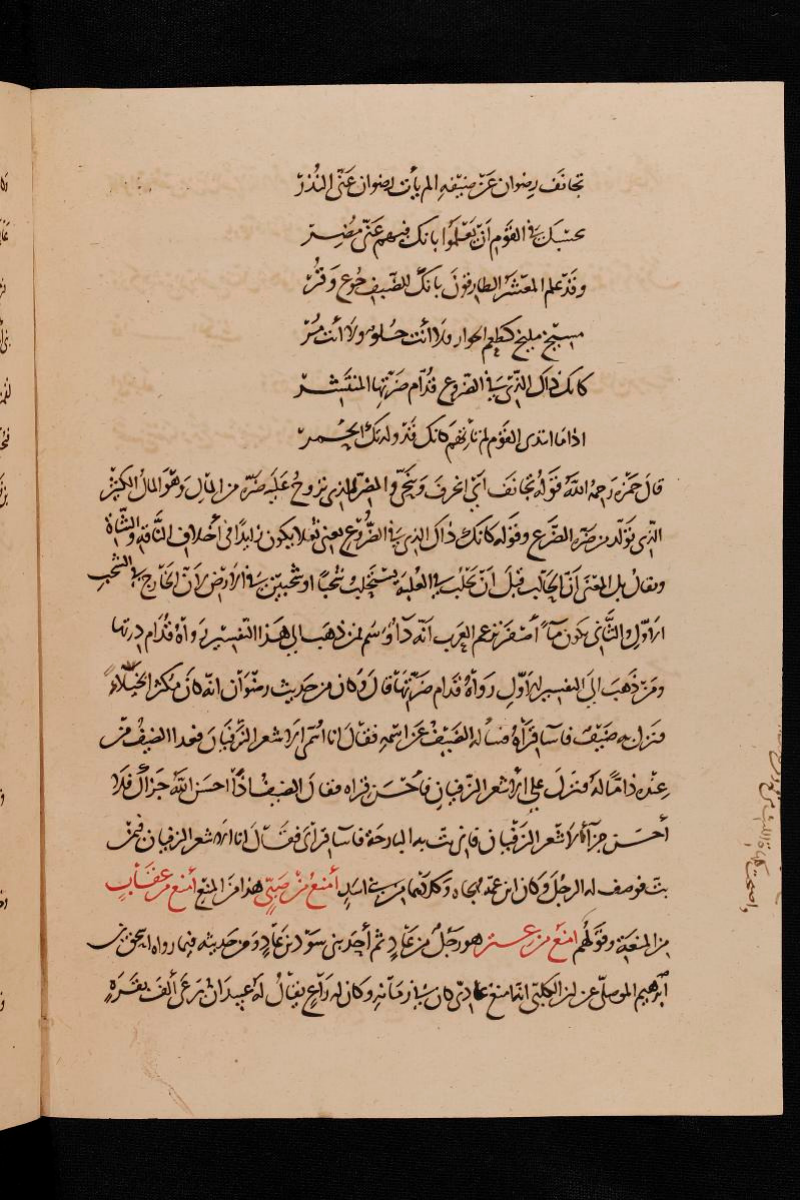 تجانَف رضوان عَن ضيفه الم يأت رضوان عَنّى النُذُرْ
بحَسْبك في القَوم اَن يَعْلَموا بانك فيهم غَنىّ مُضِرْ
وقَد عَلم المعْشر الطارقونَ بانّك للضَيف جُوع وَقُرْ
مسيخ مليخ كطعم الحوار فلا أنت حلو ولا أنت مُرْ
كانك ذاك الذى في الضروع قُدام ضرّتها المنتشرْ
اذا ما انتدى القَوم لم تأتهم كانك قد ولدتك الحُمرْ
قال حمزة رَحمهُ اللهُ قَوله تجانَف اَىْ انحرفَ وَتنَحىّ والمضِرّ الذى تروحُ عَليه ضَرّة من المال وَهْوَ المالُ الكثيرُ
الذى تولّد من ضَرّة الضَرع وقوله كانك ذاك الذى في الضُّرُوع يعنى ثعلا يكون زايدًا فى أخلاف النَّاقه والشَّاة
ويقالُ بل المعنى أنّ الحالب قبلَ أنْ يحلبُ في العُلبة يستحلِبُ شُخبًا او شخبين في الارض لان الخارج في الشخب
الاوّل والثَّانى يكون ماءً أصْفر تزعم العرب انّه دآ وسُم فمن ذهَب الى هَذا التفسير رَوَاهُ قدام درتها
ومَن ذَهَبَ الى التفسير الاوّل رَوَاهُ قدام ضَرّتها قالَ وكان من حَديث رضْوان انه كانَ مكثرًا بخيلًا
فنزل به ضَيف فاسآ قرَاهُ فسأله الضَيف عَن اسْمه فقَالَ انا اسُمى الاشعر الزَفيان فغدا الضَيفُ من
عنده ذامًّا لهُ فنزلَ على الاشعر الزفيان فاَحْسن قراه فقالَ الضيف اذًا احسن اللهُ جَزآك فلا
أحسَن جزآ الاشعر الزَفيان فانى بتّ به البارحَة فاسآ قراىَ فقَالَ انا الاشعر الزفيان فبمن
بتّ فوصف له الرجُلَ وكان ابن عمّه لحّاه وكلاهما من بنى اسد أمنَعُ مِنْ صَبىّ هذا من المنع أمنَع من عقَابٍ
مِن المنعَة وقَولهُم امنَعُ من عنز هو رَجُلٌ من عَادٍ ثم أحَد بنى سوَد بن عَادٍ وَمن حَديثه فيما رواه اسحق بن
ابرهيم الموصلّى عن ابن الكلبّى انها امنع عادىّ كان في زمانه وكان له رَاعٍ يقالُ لهُ عبيدان يرعَى ألفَ بقَرةٍ